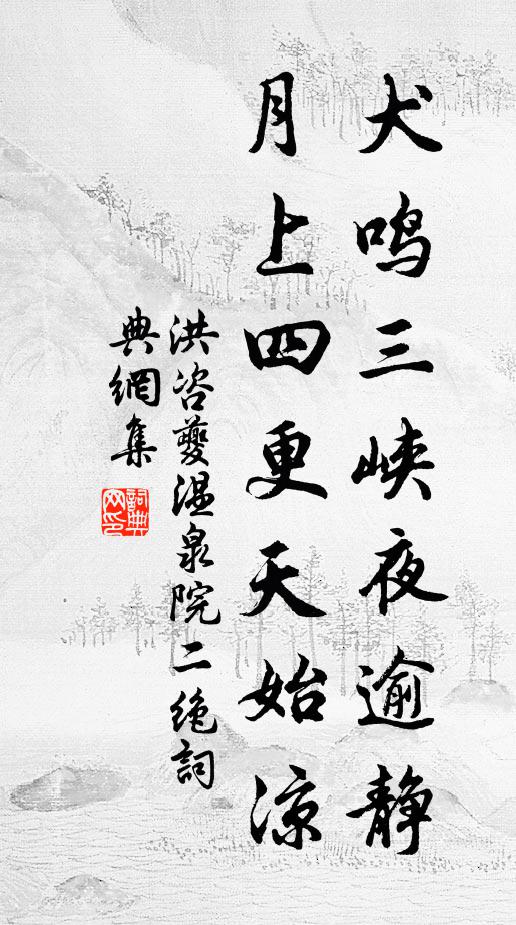 犬鸣三峡夜逾静
月上四更天始凉
洪咨夔温泉院二绝詞
典網集
詞典
网印